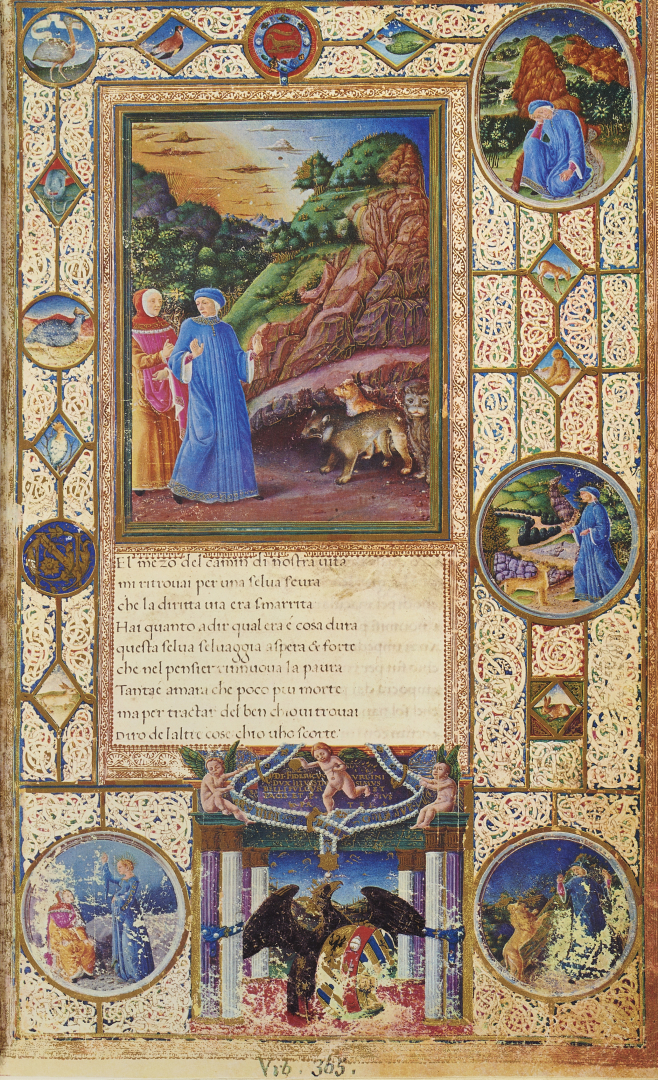 El mezo del camin di nostra uita
mi ritrouai per una selua scura
che la diritta uia era smarrita
Hai quanto adir qual era é cosa dura
questa selua seluaggia aspera & forte
che nel pensier rinnuoua la paura
Tantaé amara che poco piu morte
ma per tractar del ben chioui trouai
Diro delaltre cose chio uho scorte.
Vrb. 365.